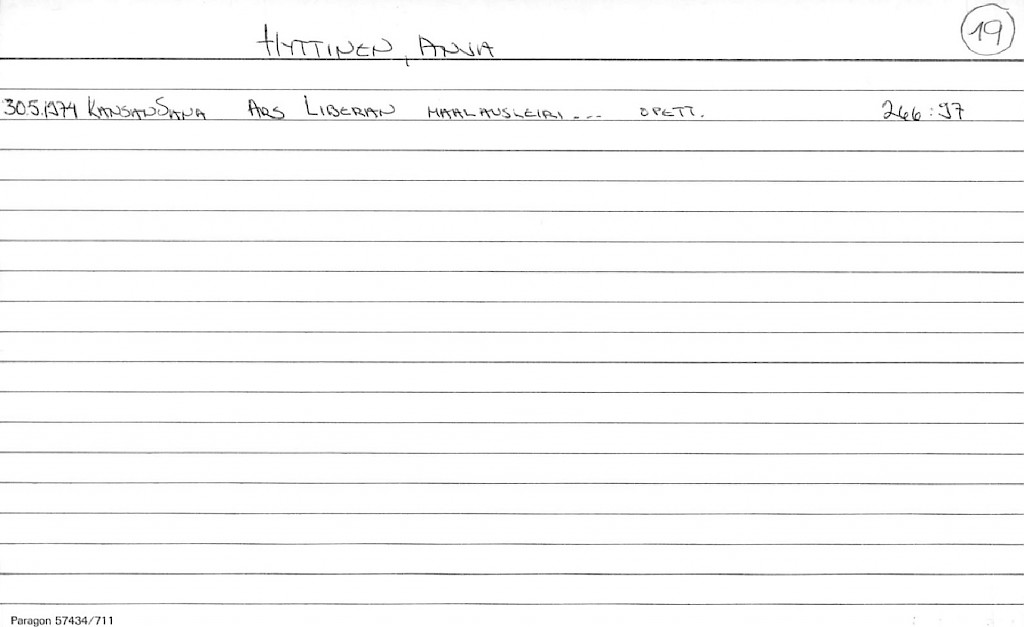 HYTTINEN, ANJA
19
30.5.1974 KANSAN SANA ARS LIBERAN MAALAUSLEIRI... OPETT. 266:97
Paragon 57434/711